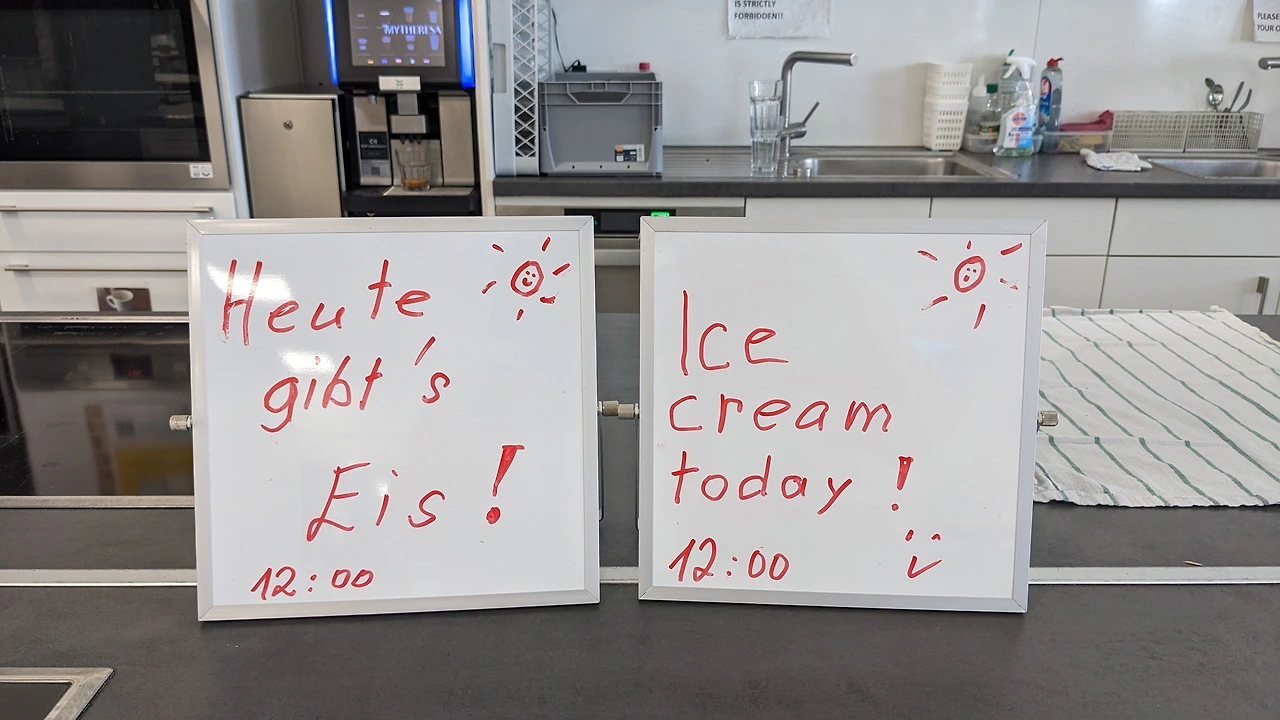 MYTHERESA
IS STRICTLY
FORBIDDEN!!
PLEASE
YOUR
Heute
gibt's
Eis!
12:00
Ice
cream
today!
12:00